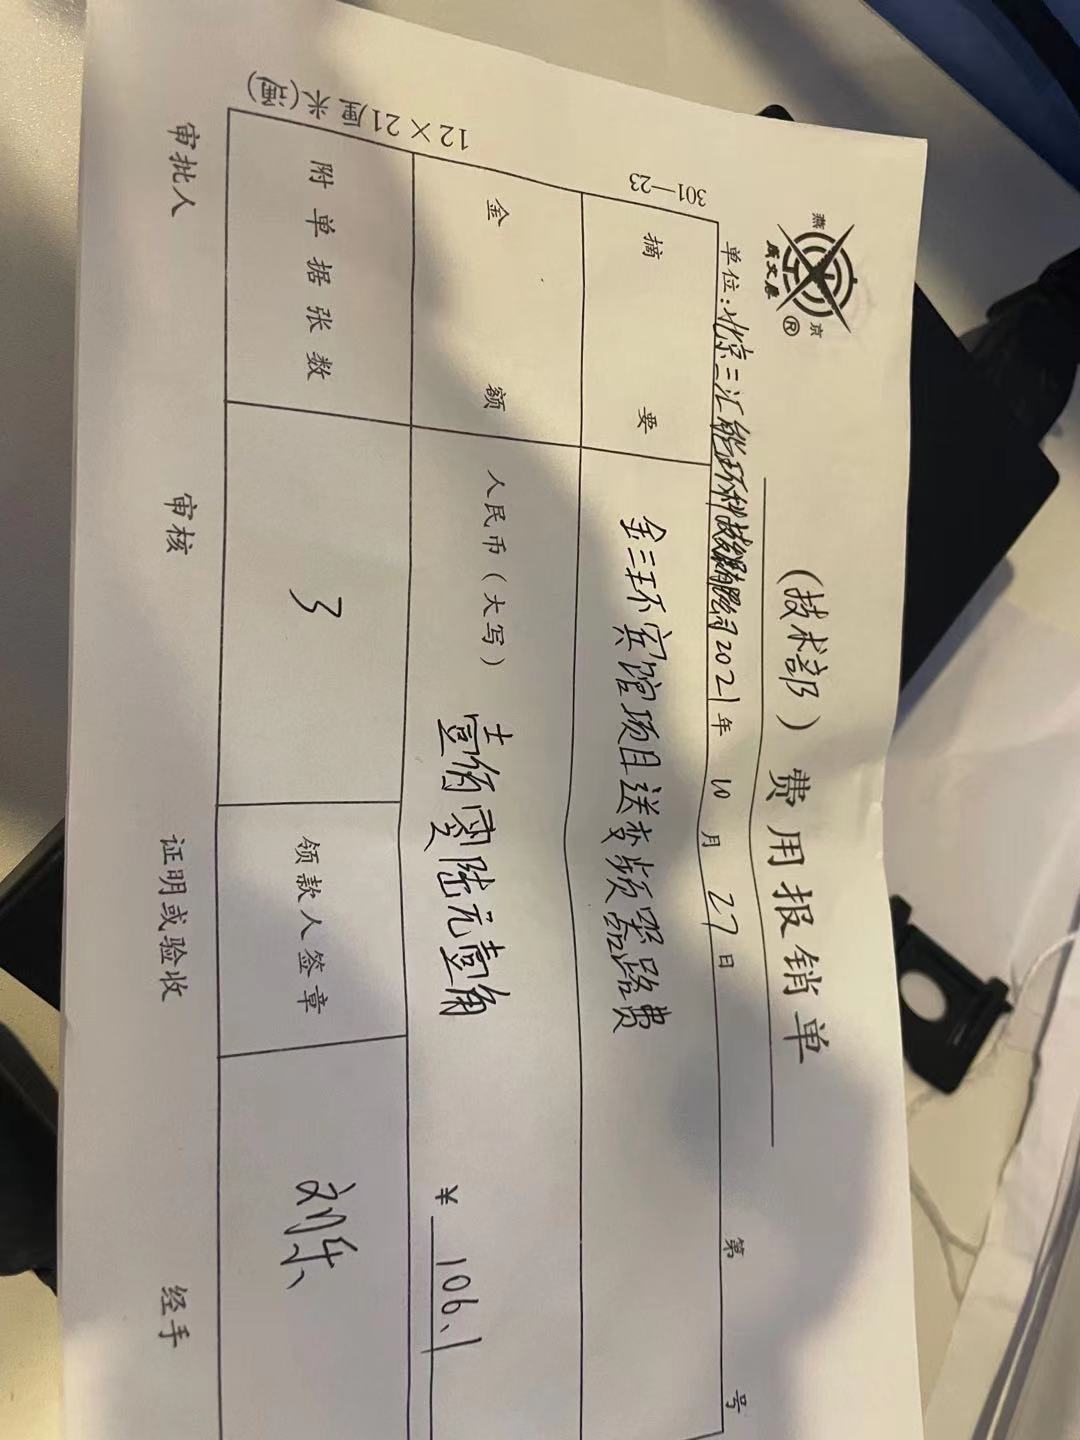 燕
京
成文厚
®
(技术部)费用报销单
单位:北京三汇能环科技发展有限公司 2021年 10月 27日 第 号
301—23
摘要 金三环宾馆项目送变频器路费
金额 人民币(大写) 壹佰零陆元壹角 ¥ 106.1
附单据张数 3 领款人签章 刘乐
12×21厘米(通)
审批人 审核 证明或验收 经手